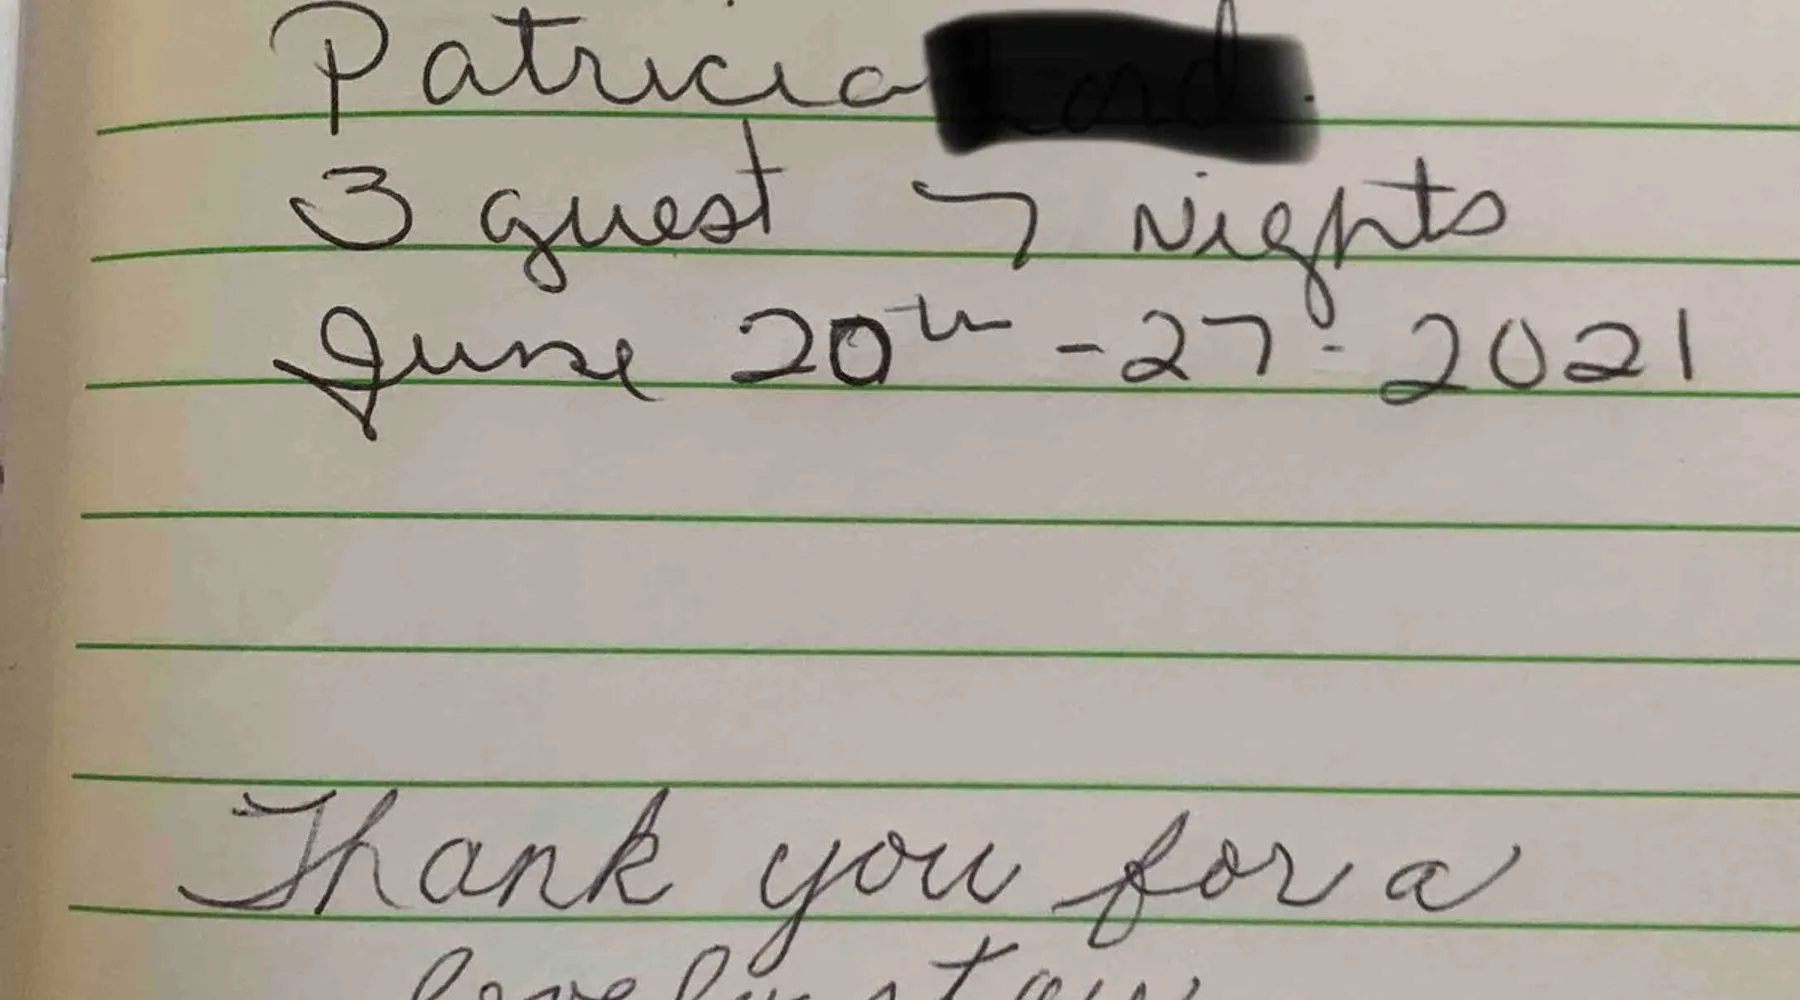 Patricia
3 guest 7 Nights
June 20th - 27 - 2021
Thank you for a
lovely stay